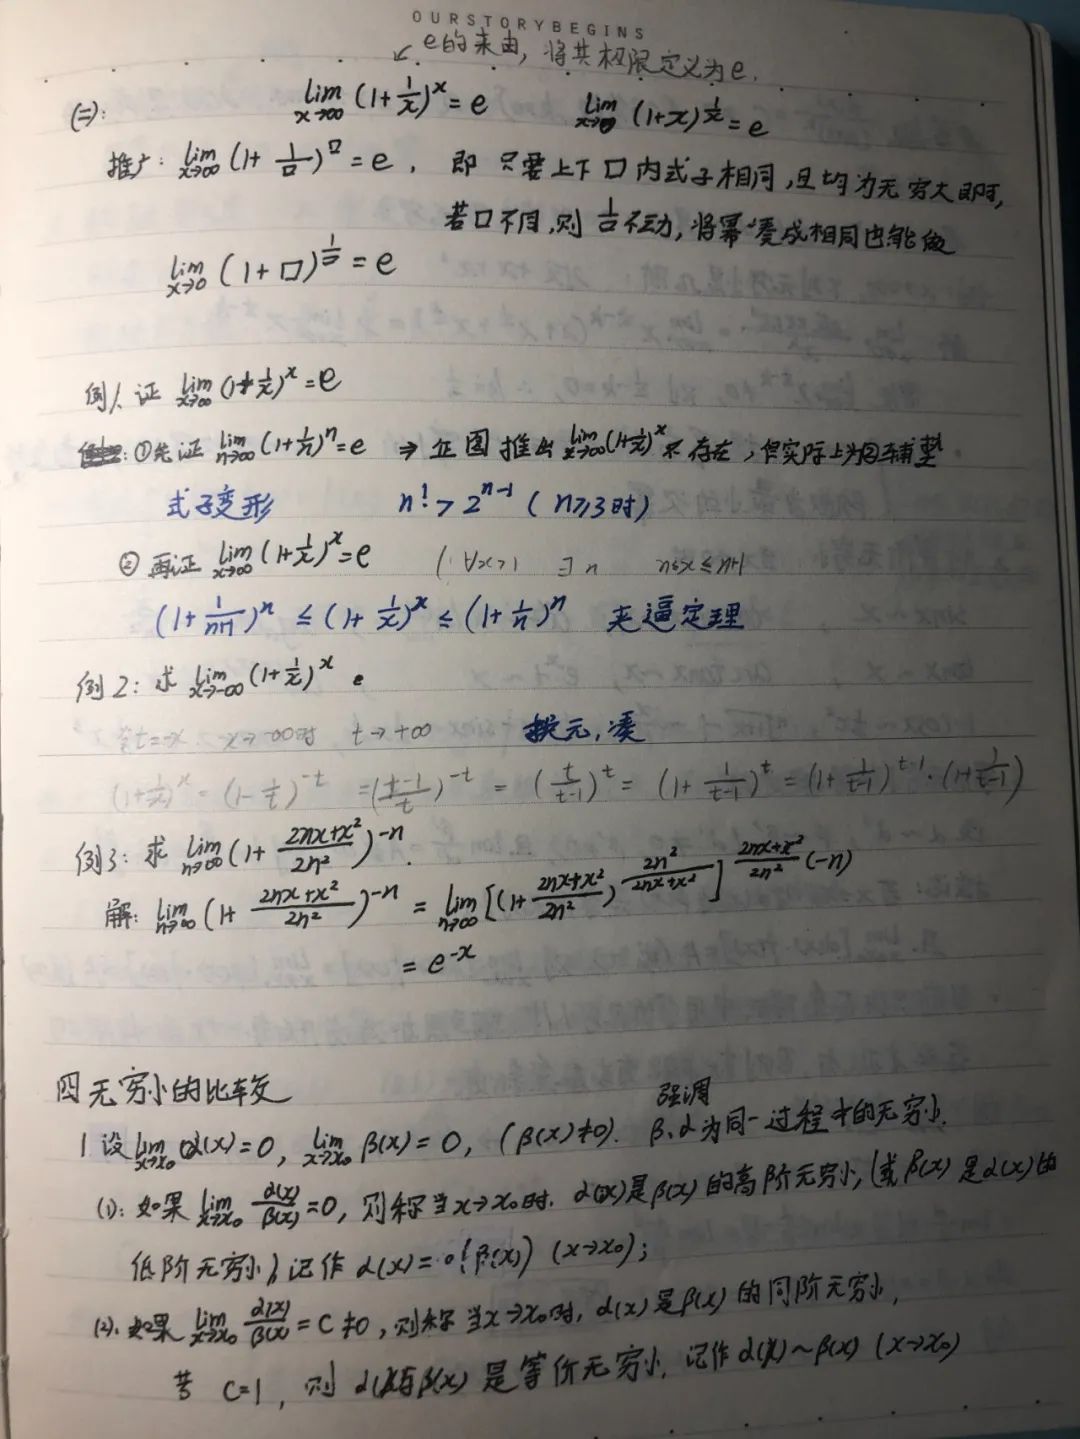 OURSTORYBEGINS
↙ e的来由, 将其权限定义为e.
(二): lim x→∞ (1+1/x)^x = e    lim (1+x)^(1/x) = e
推广: lim x→∞ (1+1/□)^□ = e, 即 只要上下□内式子相同,且均为无穷大即可,
若□不同,则 1/□不动,将幂凑成相同也能做
lim x→0 (1+□)^(1/□) = e
例1 证 lim x→∞ (1+1/x)^x = e
①先证 lim n→∞ (1+1/n)^n = e ⇒ 推出 lim x→∞ (1+1/x)^x 不存在, 但实际上为②铺垫.
式子变形    n! > 2^(n-1) (n≥3时)
②再证 lim x→∞ (1+1/x)^x = e    ( ∀x>1 ∃n n≤x≤n+1
(1+1/(n+1))^n ≤ (1+1/x)^x ≤ (1+1/n)^n 夹逼定理
例2: 求 lim x→-∞ (1+1/x)^x .
令t=-x x→-∞时, t→+∞ 换元, 凑
(1+1/x)^x = (1-1/t)^(-t) = ((t-1)/t)^(-t) = (t/(t-1))^t = (1+1/(t-1))^t = (1+1/(t-1))^(t-1)·(1+1/(t-1))
例3: 求 lim n→∞ (1+(2nx+x²)/(2n²))^(-n).
解: lim n→∞ (1+(2nx+x²)/(2n²))^(-n) = lim n→∞ [(1+(2nx+x²)/(2n²))^(2n²/(2nx+x²))]^((2nx+x²)/(2n²)(-n))
= e^(-x)
四 无穷小的比较
强调
1 设 lim x→x₀ α(x)=0, lim x→x₀ β(x)=0, (β(x)≠0). β、α为同一过程中的无穷小.
(1): 如果 lim x→x₀ α(x)/β(x)=0, 则称当x→x₀时. α(x)是β(x)的高阶无穷小, (或β(x)是α(x)的
低阶无穷小) 记作 α(x)=o(β(x)) (x→x₀);
(2). 如果 lim x→x₀ α(x)/β(x)=C≠0, 则称 当x→x₀时, α(x)是β(x)的同阶无穷小,
若 C=1, 则 α(x)与β(x)是等价无穷小, 记作 α(x)~β(x) (x→x₀)